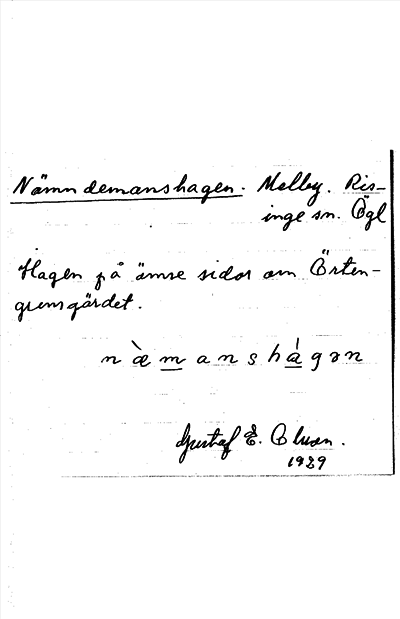 Nämndemanshagen. Melby. Ris-
inge sn. Ögl
Hagen på ömse sidor om Örten-
grensgärdet.
næ̀manshágən
Gustaf E. Olsson.
1929